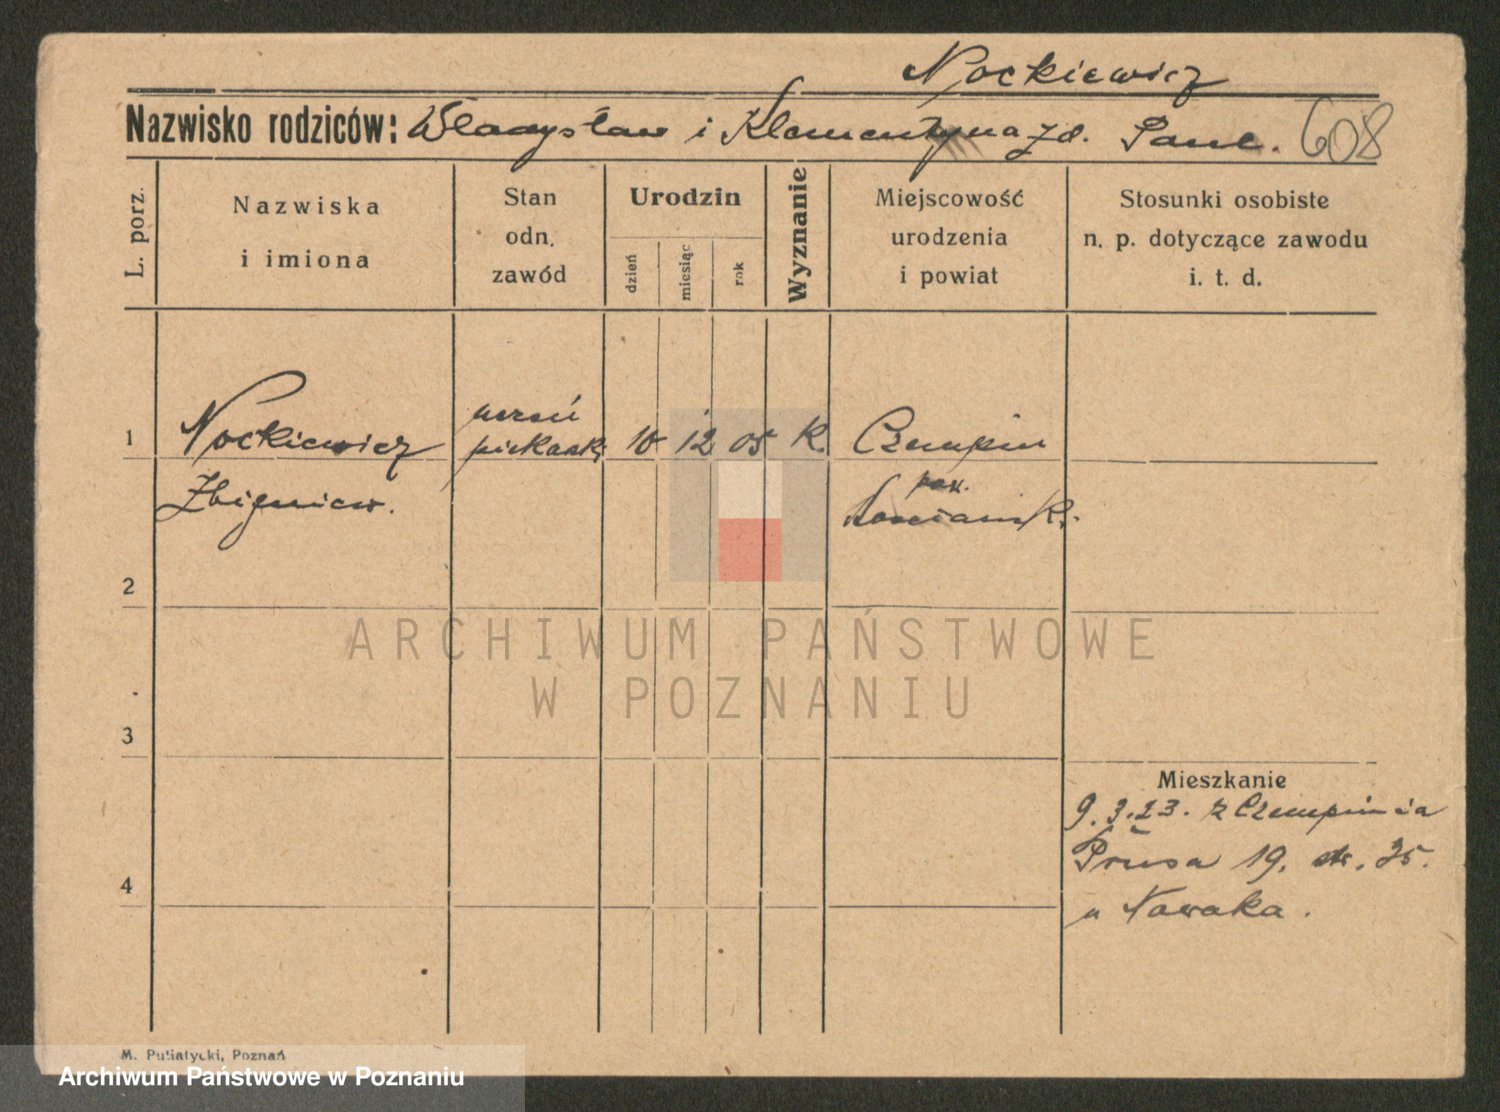 Nockiewicz
Nazwisko rodziców: Władysław i Klementyna zd. Paul. 608
L. porz.
Nazwiska
i imiona
Stan
odn.
zawód
Urodzin
dzień
miesiąc
rok
Wyznanie
Miejscowość
urodzenia
i powiat
Stosunki osobiste
n. p. dotyczące zawodu
i. t. d.
1
Nockiewicz
Zbigniew.
uczeń
piekarski
10 12 05 K.
Czempiń
pow.
Kościański.
2
3
4
Mieszkanie
9.3.23. z Czempinia
Prusa 19. 35.
u Nowaka.
ARCHIWUM PAŃSTWOWE
W POZNANIU
M. Putiatycki, Poznań
Archiwum Państwowe w Poznaniu